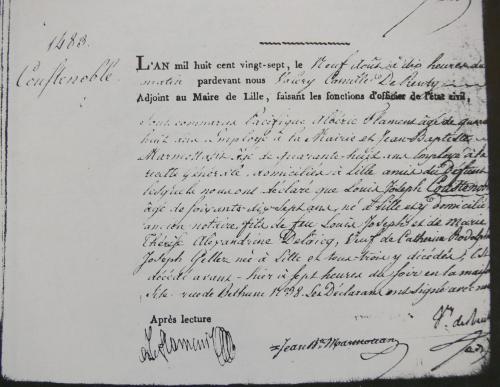 1483.
Coustenoble.
L'AN mil huit cent vingt-sept, le Neuf Août à dix heures du
matin pardevant nous Valery Camille De
Adjoint au Maire de Lille, faisant les fonctions d'officier de l'état civil,
sont comparus Pacifique Albéric Flament âgé de
huit ans Employé à la Mairie et Jean Baptiste
Marmottan âgé de quarante huit ans employé à la
recette générale domiciliés à Lille amis du Défunt
lesquels nous ont déclaré que Louis Joseph
âgé de soixante dix sept ans, né à Lille et y domicilié
ancien notaire fils de feu Louis Joseph et de Marie
Thérèse Alexandrine Veuf de Catherine
Joseph né à Lille et tous trois y décédés; est
décédé avant-hier à sept heures du soir en la
rue de Béthune N° 98. Les Déclarans ont signé avec nous
Après lecture
Jean Bte Marmottan